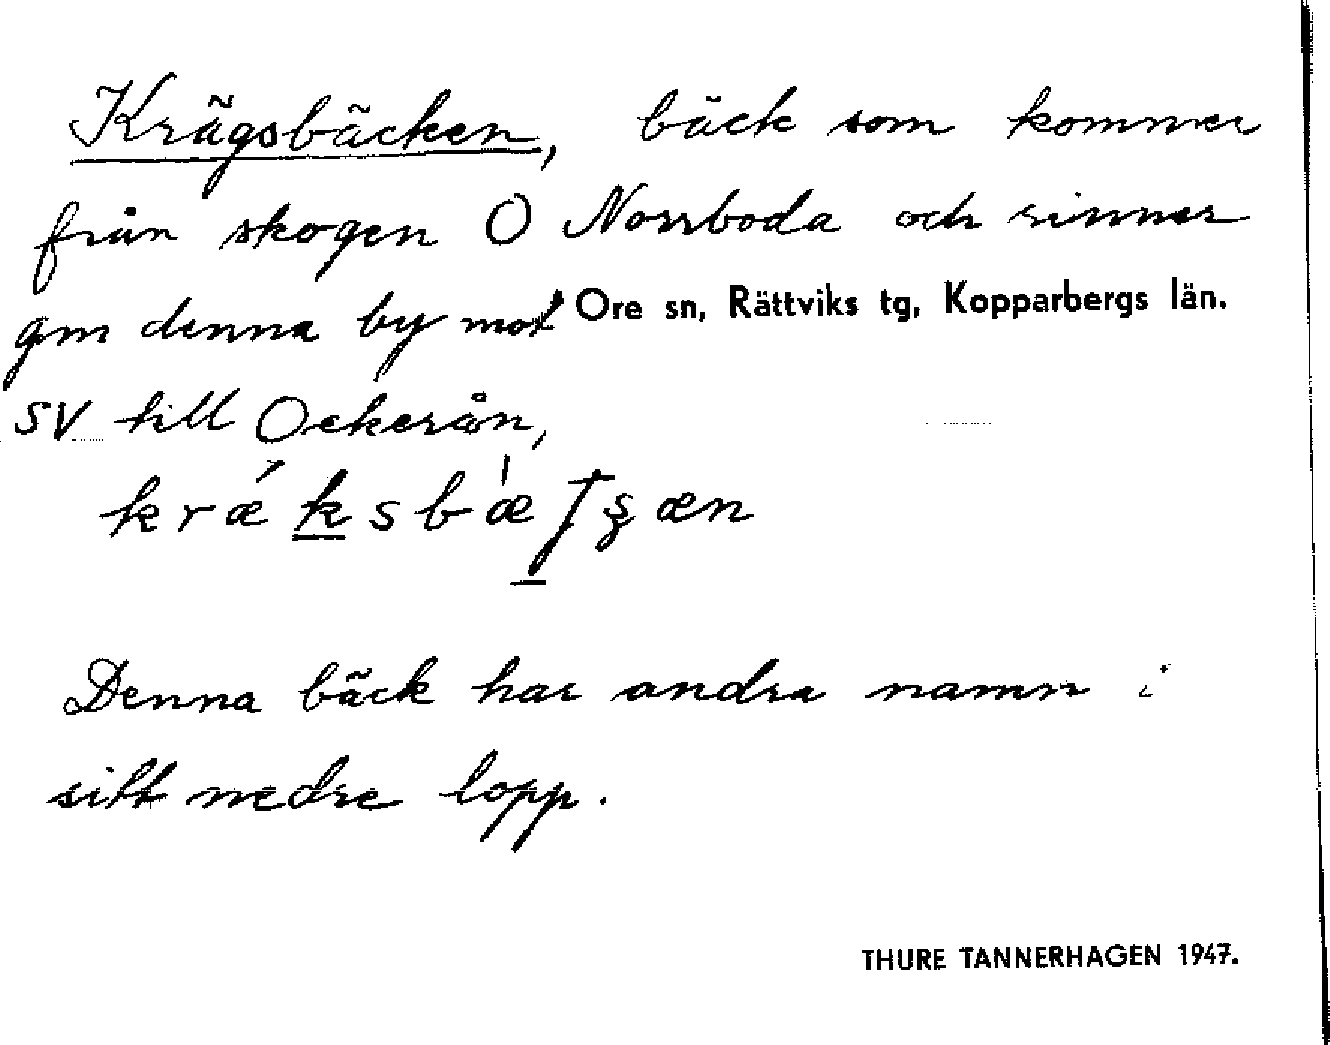 Krägsbäcken, bäck som kommer
från skogen O Norrboda och rinner
gm denna by mot Ore sn, Rättviks tg, Kopparbergs län.
SV till Ockerån,
Denna bäck har andra namn i
sitt nedre lopp.
THURE TANNERHAGEN 1947.